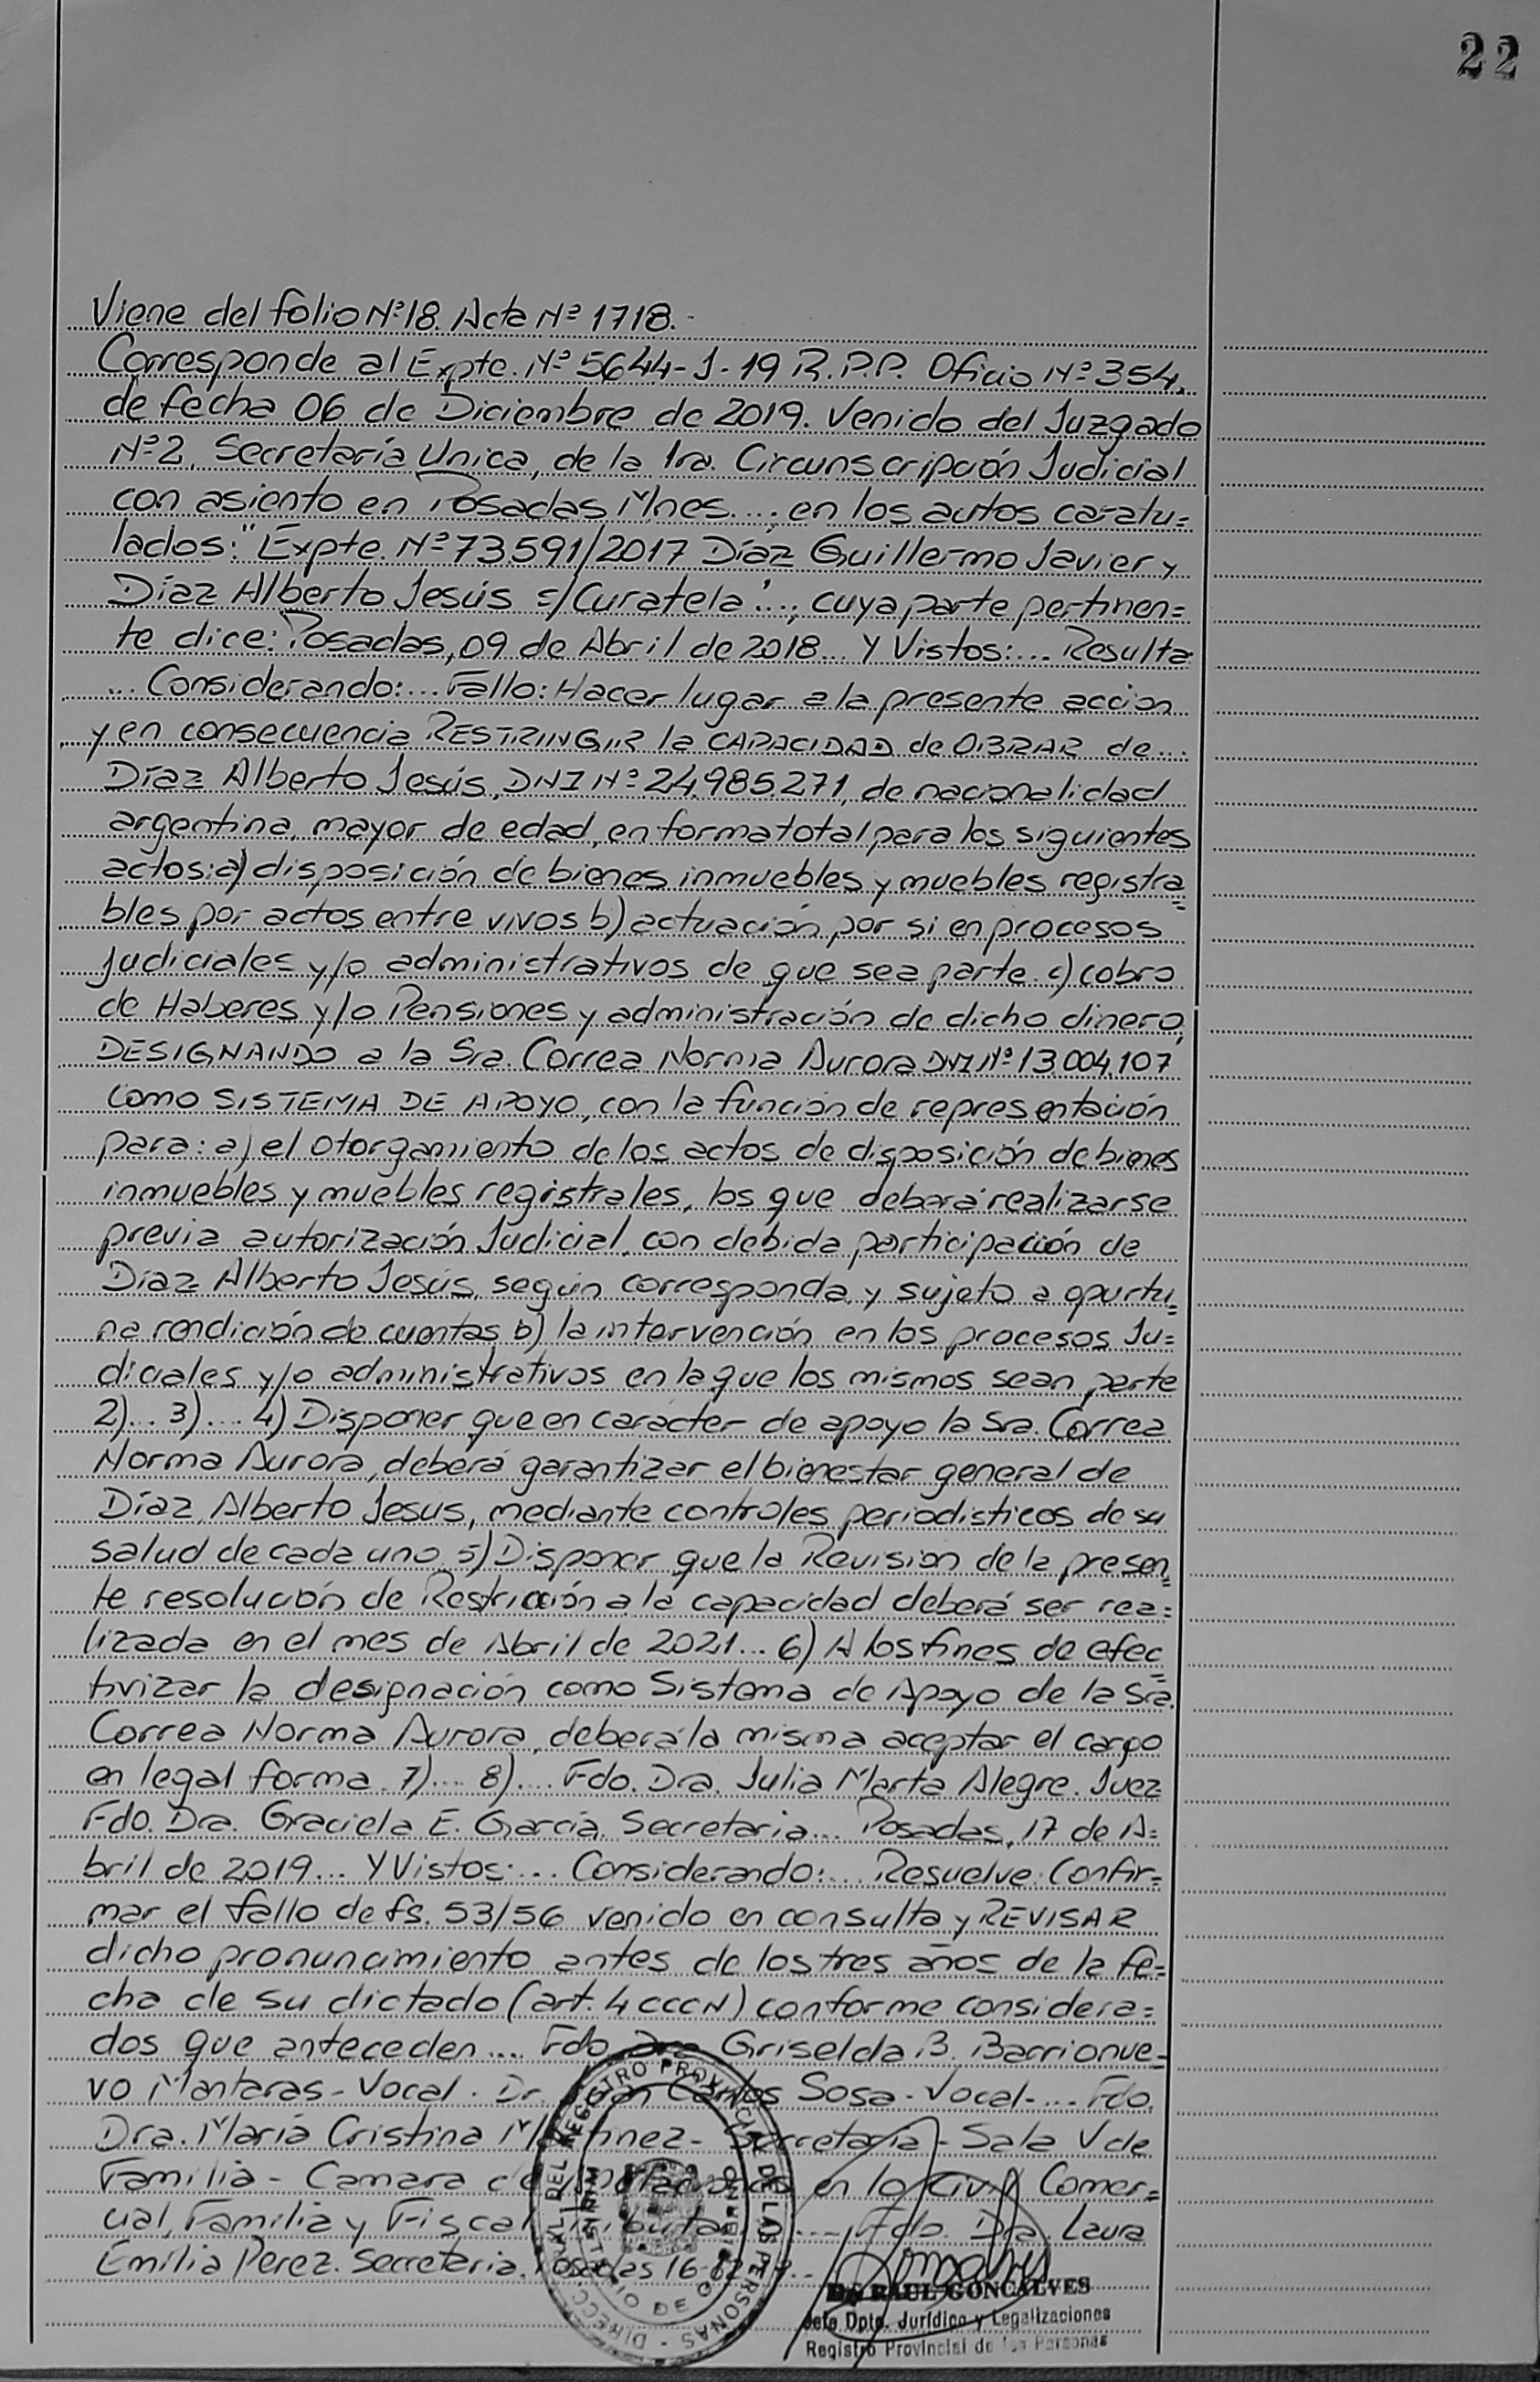 22
Viene del folio Nº 18. Acta Nº 1718.-
Corresponde al Expte. Nº 5644-J-19 R.P.P. Oficio Nº 354,
de fecha 06 de Diciembre de 2019. Venido del Juzgado
Nº 2, Secretaría Unica, de la 1ra. Circunscripción Judicial
con asiento en Posadas Mnes....; en los autos caratu=
lados: "Expte. Nº 73591/2017 Díaz Guillermo Javier y
Díaz Alberto Jesús s/Curatela"..., cuya parte pertinen=
te dice: Posadas, 09 de Abril de 2018... Y Vistos:... Resulta
... Considerando:... Fallo: Hacer lugar a la presente accion
y en consecuencia RESTRINGIR la CAPACIDAD de OBRAR de...
Díaz Alberto Jesús, DNI Nº 24.985.271, de nacionalidad
argentina, mayor de edad, en forma total para los siguientes
actos: a) disposición de bienes inmuebles y muebles registra=
bles por actos entre vivos b) actuación por si en procesos
Judiciales y/o administrativos de que sea parte. c) cobro
de Haberes y/o Pensiones y administración de dicho dinero,
DESIGNANDO a la Sra. Correa Norma Aurora DNI Nº 13.004.107
como SISTEMA DE APOYO, con la función de representación
para: a) el otorgamiento de los actos de disposición de bienes
inmuebles y muebles registrales, los que deberá realizarse
previa autorización Judicial, con debida participación de
Díaz Alberto Jesús, según corresponda, y sujeto a opurtu=
na rendición de cuentas b) la intervención en los procesos Ju=
diciales y/o administrativos en la que los mismos sean parte
2)... 3).... 4) Disponer que en carácter de apoyo la Sra. Correa
Norma Aurora, deberá garantizar el bienestar general de
Díaz Alberto Jesus, mediante controles periodisticos de su
salud de cada uno. 5) Disponer que la Revision de la presen=
te resolución de Restricción a la capacidad deberá ser rea=
lizada en el mes de Abril de 2021... 6) A los fines de efec=
tivizar la designación como Sistema de Apoyo de la Sra.
Correa Norma Aurora, deberá la misma aceptar el cargo
en legal forma. 7).... 8).... Fdo. Dra. Julia Marta Alegre. Juez
Fdo. Dra. Graciela E. García. Secretaria... Posadas, 17 de A=
bril de 2019... Y Vistos:... Considerando:... Resuelve: Confir=
mar el fallo de fs. 53/56 venido en consulta y REVISAR
dicho pronunciamiento antes de los tres años de la fe=
cha de su dictado (art. 4 CCCN) conforme considera=
dos que anteceden.... Fdo Dra Griselda B. Barrionue=
vo Mantaras - Vocal. Dr. Juan Carlos Sosa - Vocal-... Fdo.
Dra. María Cristina Martinez - Secretaria - Sala V de
Familia - Camara de Apelaciones en lo Civil Comer=
cial, Familia y Fiscal Tributario.... Fdo. Dra. Laura
Emilia Perez. Secretaria. Posadas 16-12-19.-
DIRECC. GRAL. DEL REGISTRO PROVINCIAL DE LAS PERSONAS
MINISTERIO DE GOBIERNO
Dr. RAUL GONCALVES
Jefe Dpto. Jurídico y Legalizaciones
Registro Provincial de las Personas